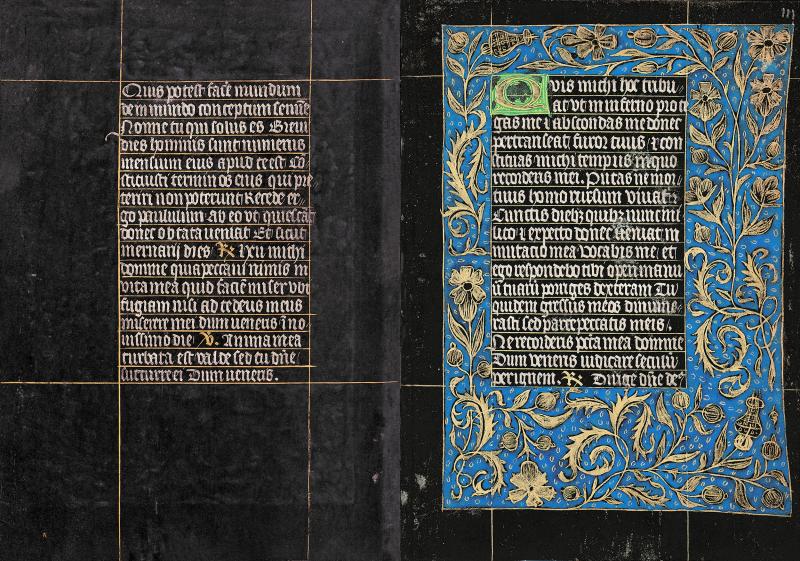 Quis potest face mundum
de in mundo conceptum semie
Nonne tu qui solus es Breui
dies hominis sunt numerus
mensium eius apud te est Cō
stituisti terminos eius qui pre
teriri non poterunt Recede er
go paululum ab eo vt quiescat
donec optata ueniat Et sicut
mernarij dies R Heu michi
domine quia peccaui nimis in
vita mea quid faciā miser vbi
fugiam nisi ad te deus meus
miserere mei dum ueneris ī no
uissimo die V. Anima mea
turbata est valde sed tu dn̄e
succurre ei Dum ueneris.
Quis michi hoc tribu
at vt in inferno prote
gas me et abscondas me donec
pertranseat furor tuus et con
stituas michi tempus in quo
recorderis mei. Putas ne mor
tuus homo rursum viuat
Cunctis diebz quibz nunc mi
lito et expecto donec ueniat in
mutatio mea Vocabis me et
ego respondebo tibi operi manu
ū tuarū porriges dexteram Tu
quidem gressus meos dinume
rasti sed parce peccatis meis.
Ne recorderis pctā mea domine
Dum veneris iudicare seculū
per ignem. R Dirige dn̄e de